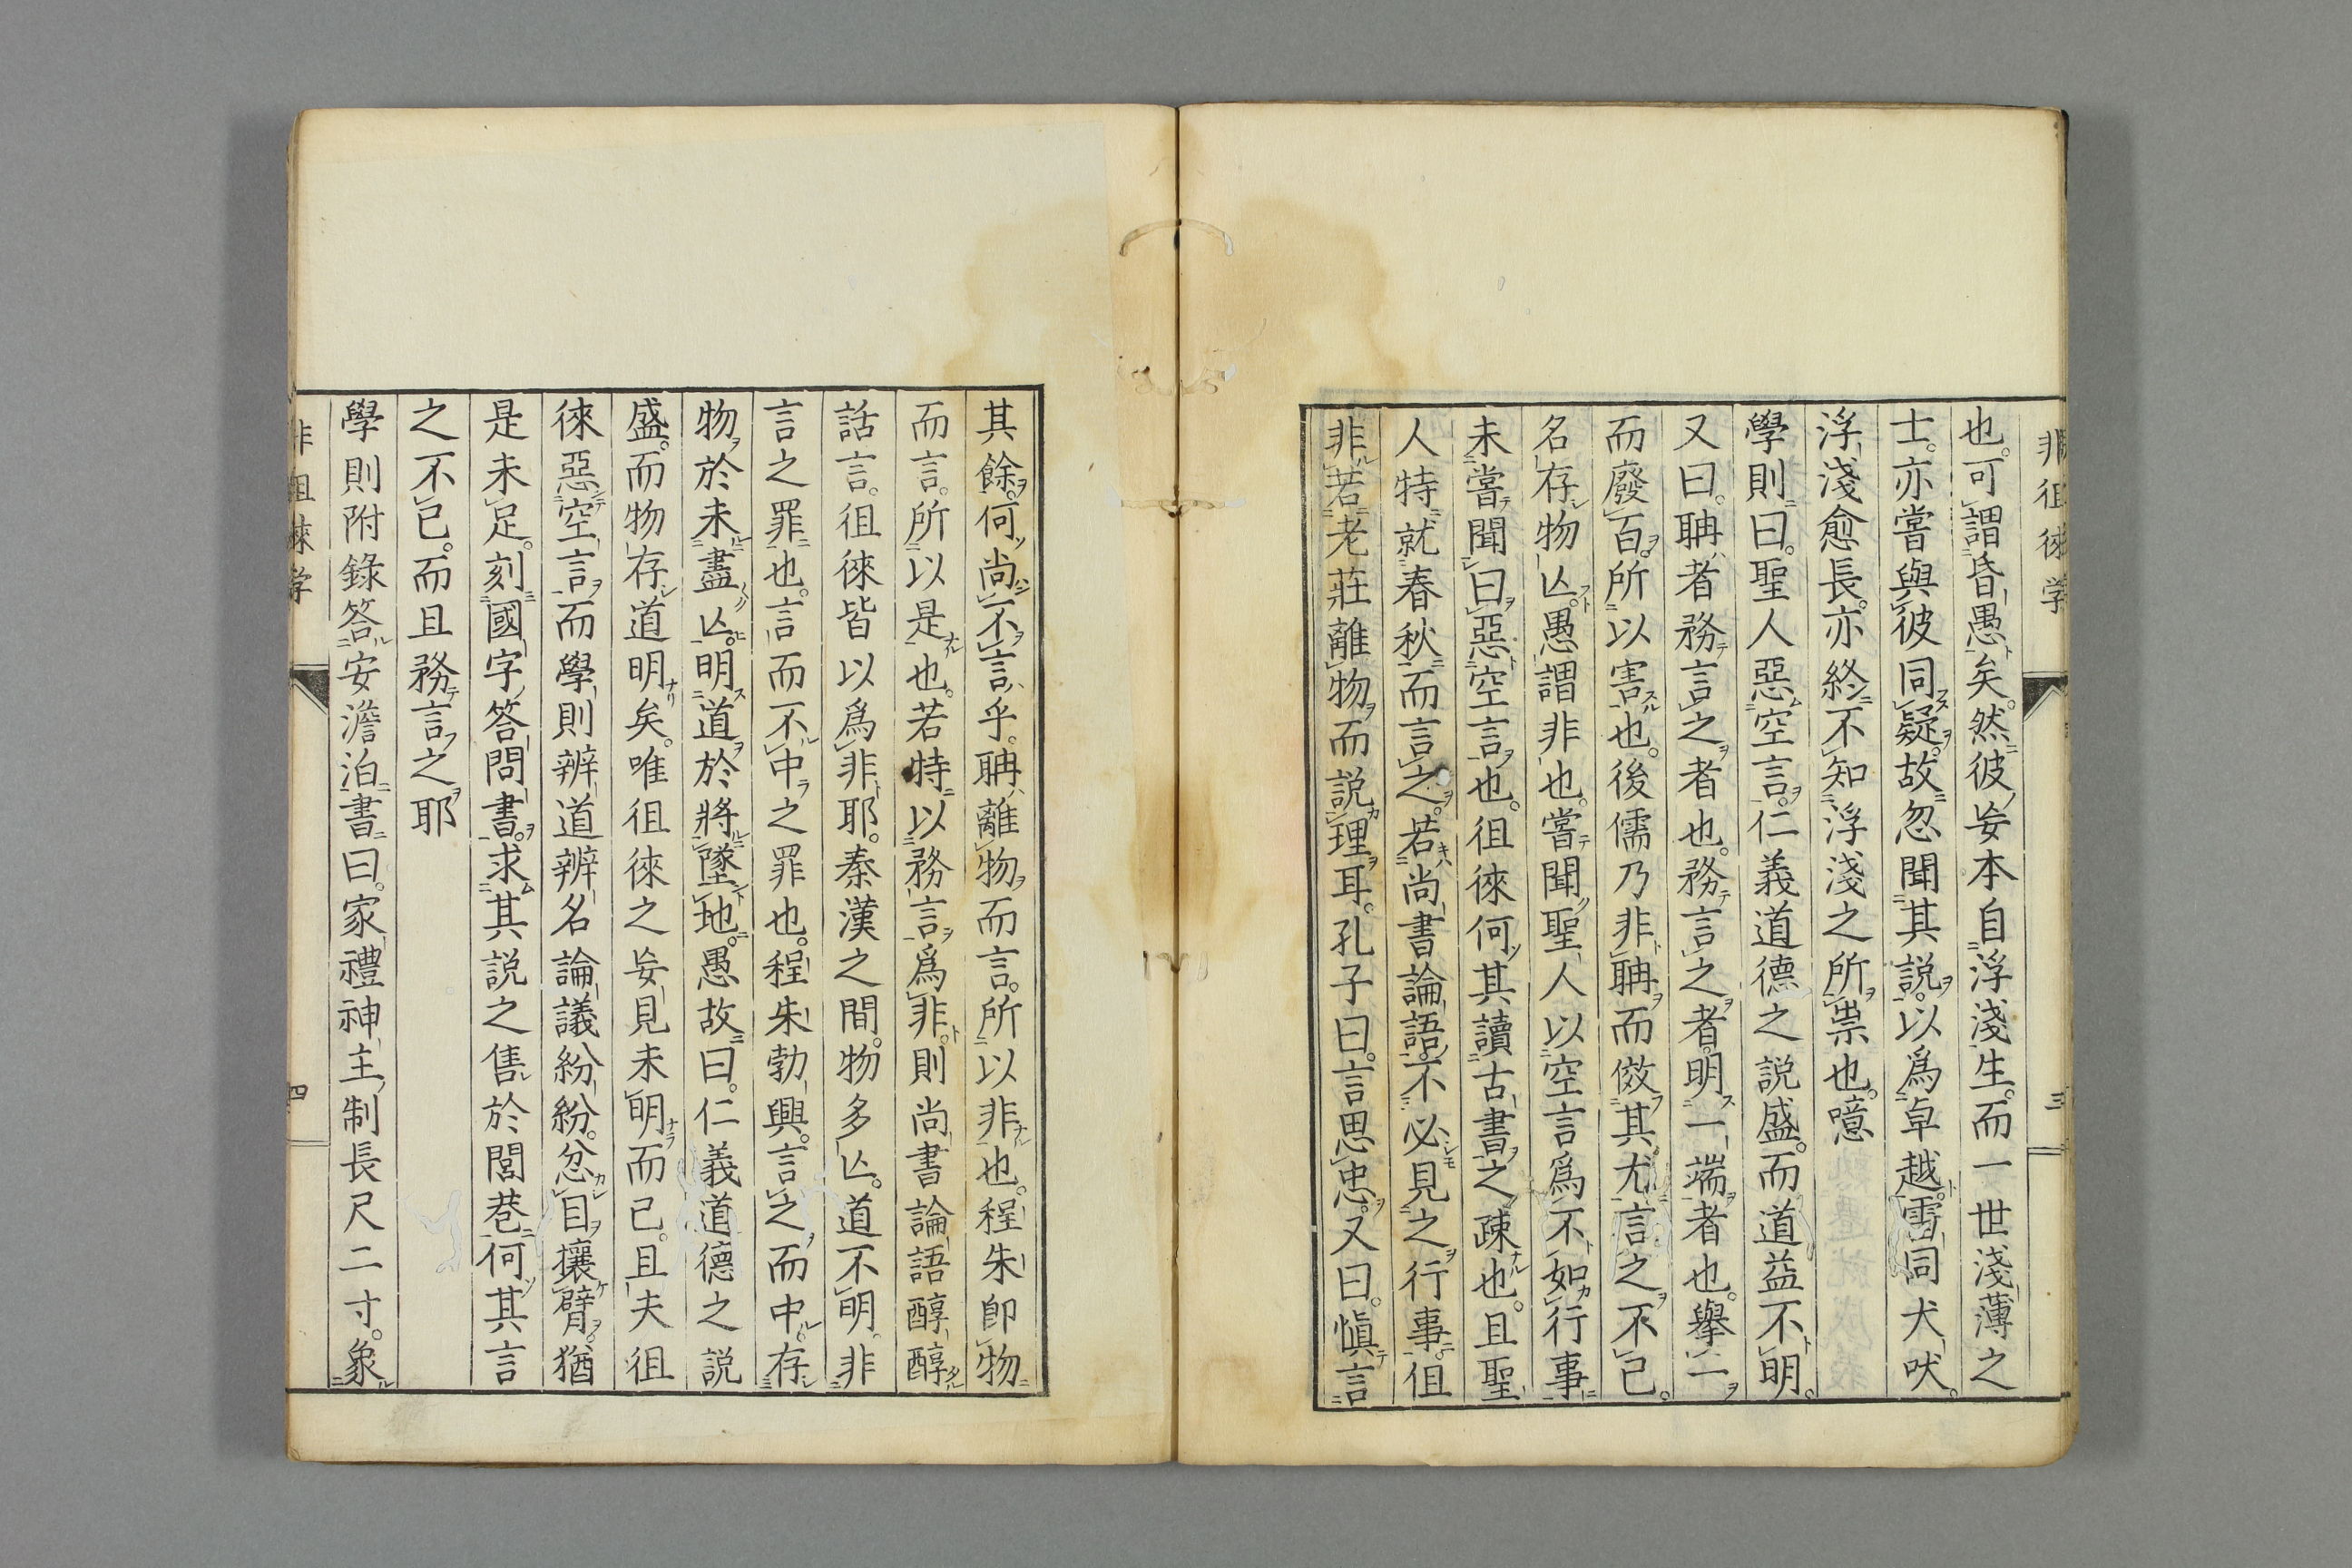 非徂徠学
三
也。可謂昏愚矣。然彼妄本自浮淺生。而一世淺薄之
士。亦嘗與彼同疑。故忽聞其説。以爲卓越。雷同犬吠。
浮淺愈長。亦終不知浮淺之所祟也。噫
學則曰。聖人惡空言。仁義道德之説盛。而道益不明。
又曰。聃者務言之者也。務言之者。明一端者也。擧一
而廢百。所以害也。後儒乃非聃而傚其尤。言之不已。
名存物亾。愚謂非也。嘗聞聖人以空言爲不如行事
未嘗聞曰惡空言也。徂徠何其讀古書之疎也。且聖
人特就春秋而言之。若尚書論語。不必見之行事。徂
非若老莊離物而説理耳。孔子曰。言思忠。又曰。愼言
其餘。何尚不言乎。聃離物而言。所以非也。程朱卽物
而言。所以是也。若特以務言爲非。則尚書論語醇醇
話言。徂徠皆以爲非耶。秦漢之間。物多亾。道不明。非
言之罪也。言而不中之罪也。程朱勃興。言之而中。存
物於未盡亾。明道於將墜地。愚故曰。仁義道德之説
盛。而物存道明矣。唯徂徠之妄見未明而已。且夫徂
徠惡空言。而學則辨道辨名論議紛紛。忿目攘臂。猶
是未足。刻國字答問書。求其説之售於閭巷。何其言
之不已。而且務言之耶
學則附錄答安澹泊書曰。家禮神主。制長尺二寸。象
非徂徠学
四